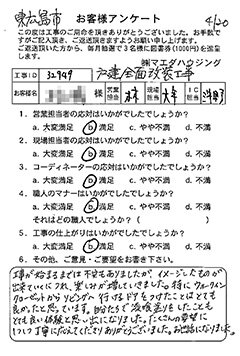 東広島市
お客様アンケート
4/20
この度は工事のご用命を頂きありがとうございました。お手数で
すがご記入頂き、ご返送頂きますようお願い申し上げます。
ご返送頂いた方から、毎月抽選で3名様に図書券(1000円)を進呈
します。
㈱マエダハウジング
工事ID 32949 戸建全面改装工事
お客様 様 営業担当 現場担当 IC担当
1. 営業担当者の対応はいかがでしたでしょうか?
a. 大変満足 b 満足 c. やや不満 d. 不満
2. 現場担当者の対応はいかがでしたでしょうか?
a. 大変満足 b 満足 c. やや不満 d. 不満
3. コーディネーターの応対はいかがでしたでしょうか?
a. 大変満足 b 満足 c. やや不満 d. 不満
4. 職人のマナーはいかがでしたでしょうか?
a. 大変満足 b 満足 c. やや不満 d. 不満
それはどの職人でしょうか?( )
5. 工事の仕上がりはいかがでしたでしょうか?
a. 大変満足 b 満足 c. やや不満 d. 不満
6. その他、ご意見・ご要望をお書き下さい。
工事が始まるまでは不安もありましたが、イメージしたものが
出来ていくにつれ、楽しみが増していきました。特にウォークイン
クローゼットからリビングへ行けるドアもつけたことはとても
良かったと思っています。自分たちで漆喰塗りもしたことも
とても良い体験と思い出になりました。たくさんの要望に
ついて丁寧に応えてくださりありがとうございました。お世話になりました。